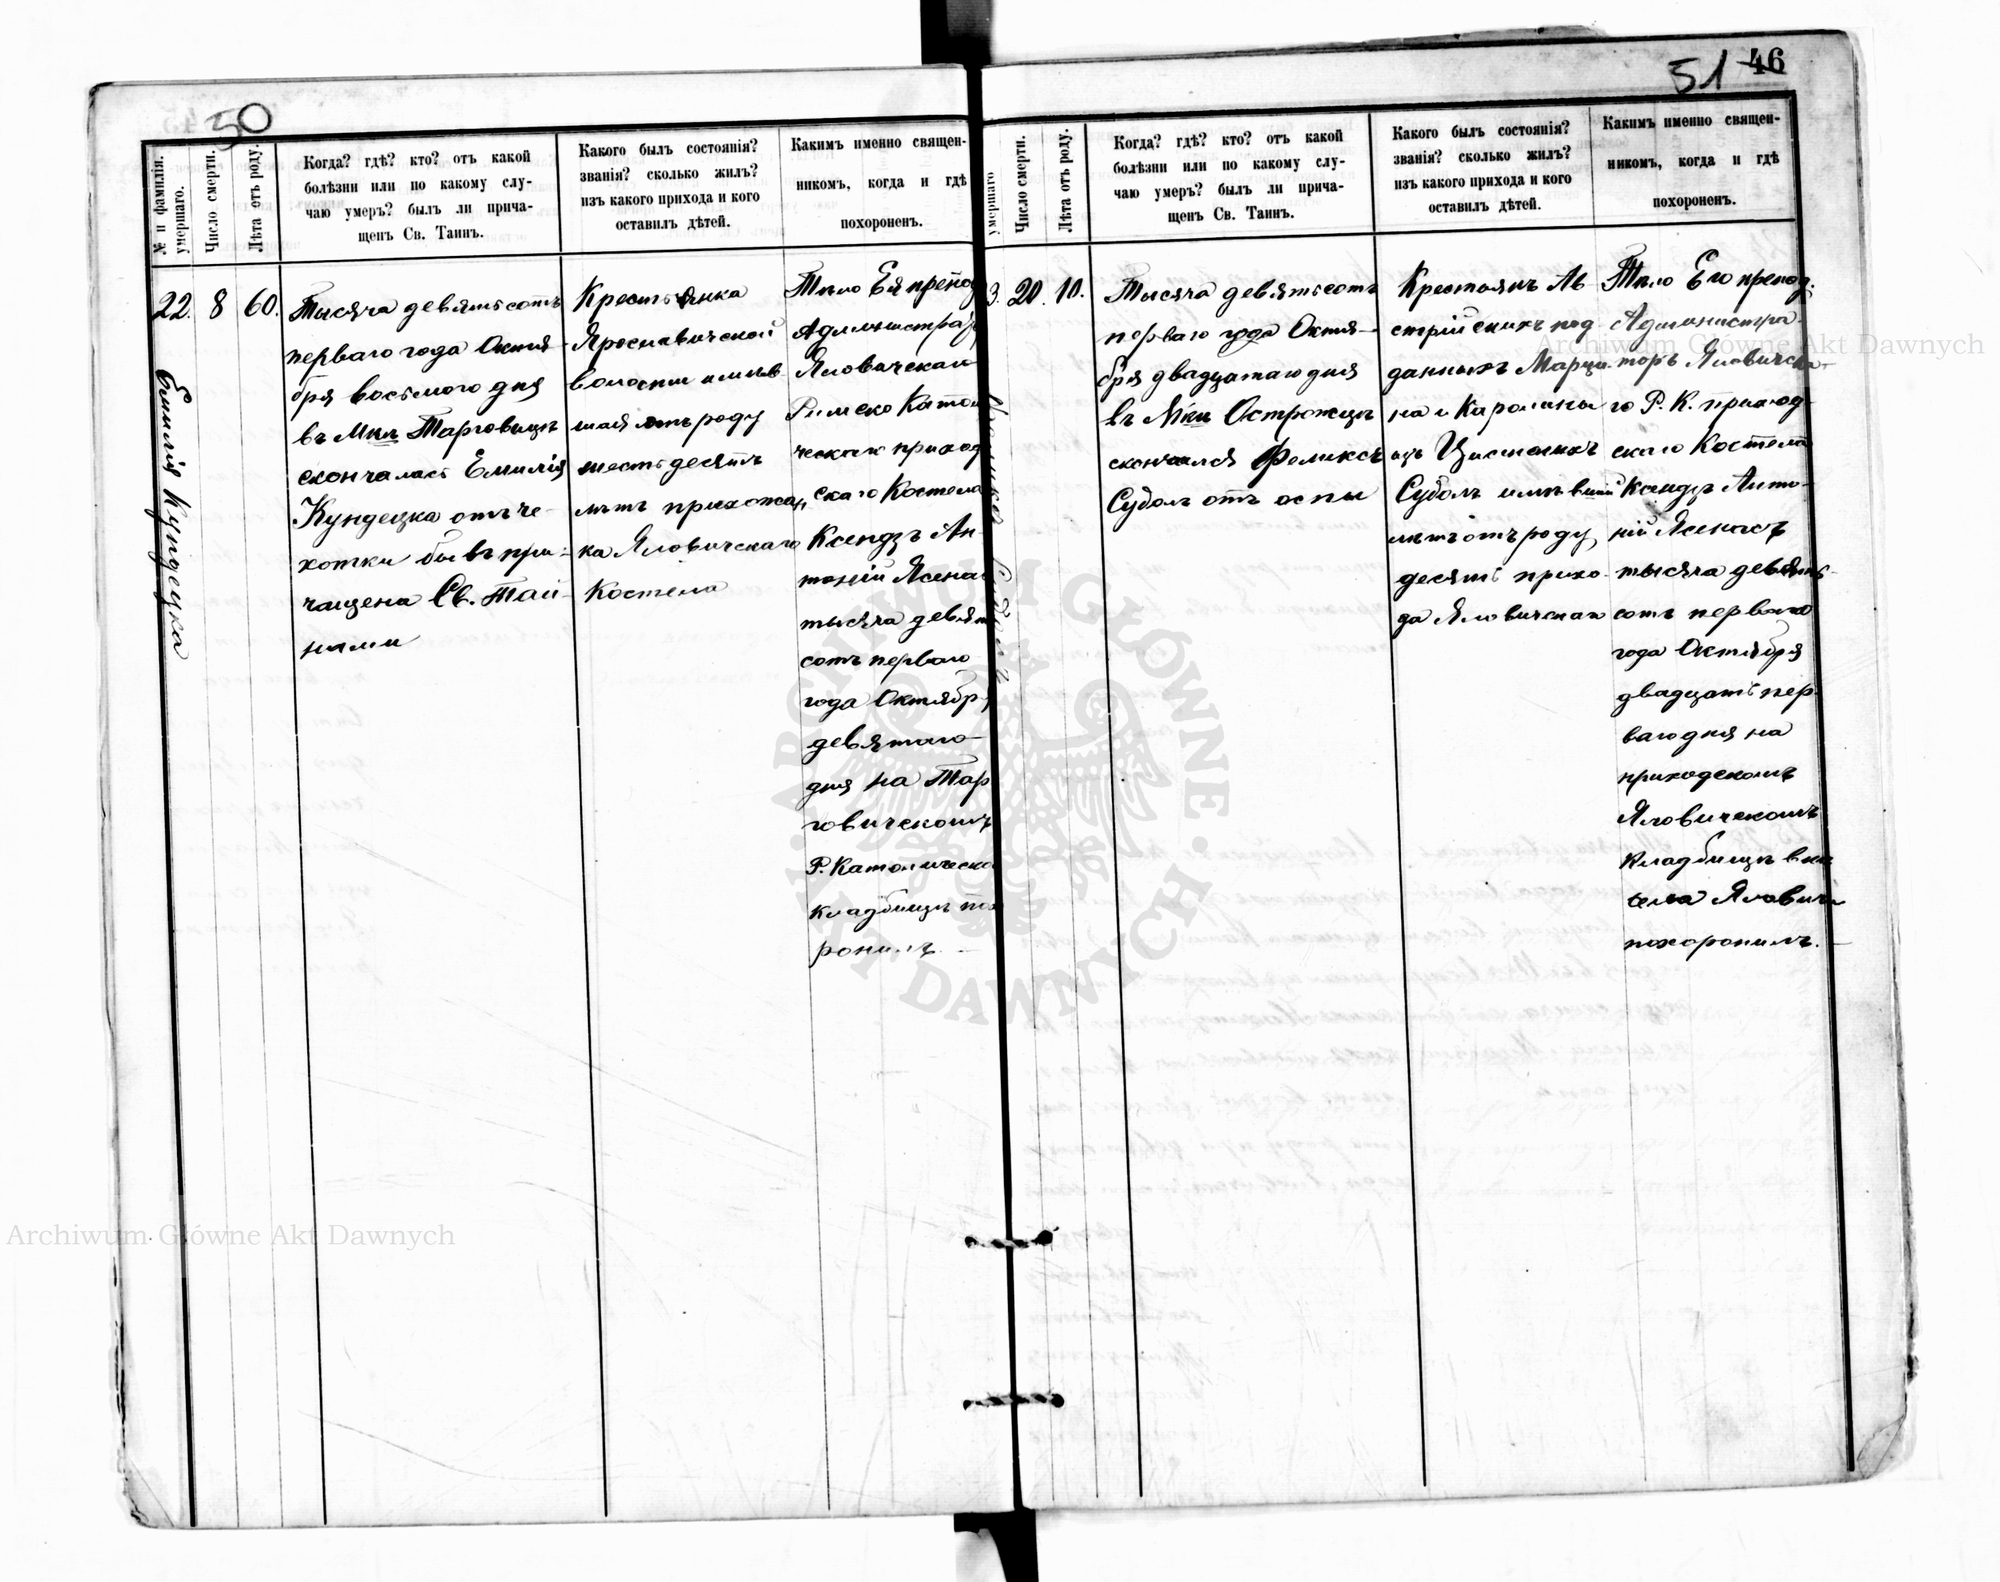 50
№ и фамилія умершаго.
Число смерти.
Лѣта отъ роду.
Когда? гдѣ? кто? отъ какой
болѣзни или по какому слу-
чаю умеръ? былъ ли прича-
щенъ Св. Таинъ.
Какого былъ состоянія?
званія? сколько жилъ?
изъ какого прихода и кого
оставилъ дѣтей.
Какимъ именно священ-
никомъ, когда и гдѣ
похороненъ.
22.
Емилія Кундецка
8
60.
Тысяча девятьсотъ
перваго года Октя-
бря восьмого дня
въ Мкл Тарговицѣ
скончалась Емилія
Кундецка отъ че-
хотки бывъ при-
чащена Св. Тай-
нами
Крестьянка
Ярославичской
волости имѣв
шая отъ роду
шестьдесятъ
лѣтъ прихожан
ка Яловичскаго
Костела
Тѣло Ея препод
Администрар
Яловичскаго
Римско Катол
ческаго приход
скаго Костела
Ксендзъ Ан-
тоній Ясена
тысяча девят
сотъ перваго
года Октябр
девятаго
дня на Тар
говичскомъ
Р. Католическо
кладбищѣ пох
ронилъ
51 46
умершаго
Число смерти.
Лѣта отъ роду.
Когда? гдѣ? кто? отъ какой
болѣзни или по какому слу-
чаю умеръ? былъ ли прича-
щенъ Св. Таинъ.
Какого былъ состоянія?
званія? сколько жилъ?
изъ какого прихода и кого
оставилъ дѣтей.
Какимъ именно священ-
никомъ, когда и гдѣ
похороненъ.
3.
20.
10.
Тысяча девятьсотъ
перваго года Октя-
бря двадцатаго дня
въ Мкл Острожцѣ
скончался Феликсъ
Судолъ отъ оспы
Крестьянъ Ав
стрійскихъ под
данныхъ Марци
на и Каролины
изъ
Судолъ имѣвшій
лѣтъ отъ роду
десять прихо-
да Яловичскаго
Тѣло Его препод.
Администра-
торъ Яловичска-
го Р. К. приход-
скаго Костела
Ксендзъ Анто-
ній Ясенасъ
тысяча девять-
сотъ перваго
года Октября
двадцать пер
ваго дня на
приходскомъ
Яловичскомъ
Кладбищѣ в
села Яловичи
похоронилъ.
Archiwum Główne Akt Dawnych
Archiwum Główne Akt Dawnych
ARCHIWUM GŁÓWNE · AKT DAWNYCH ·